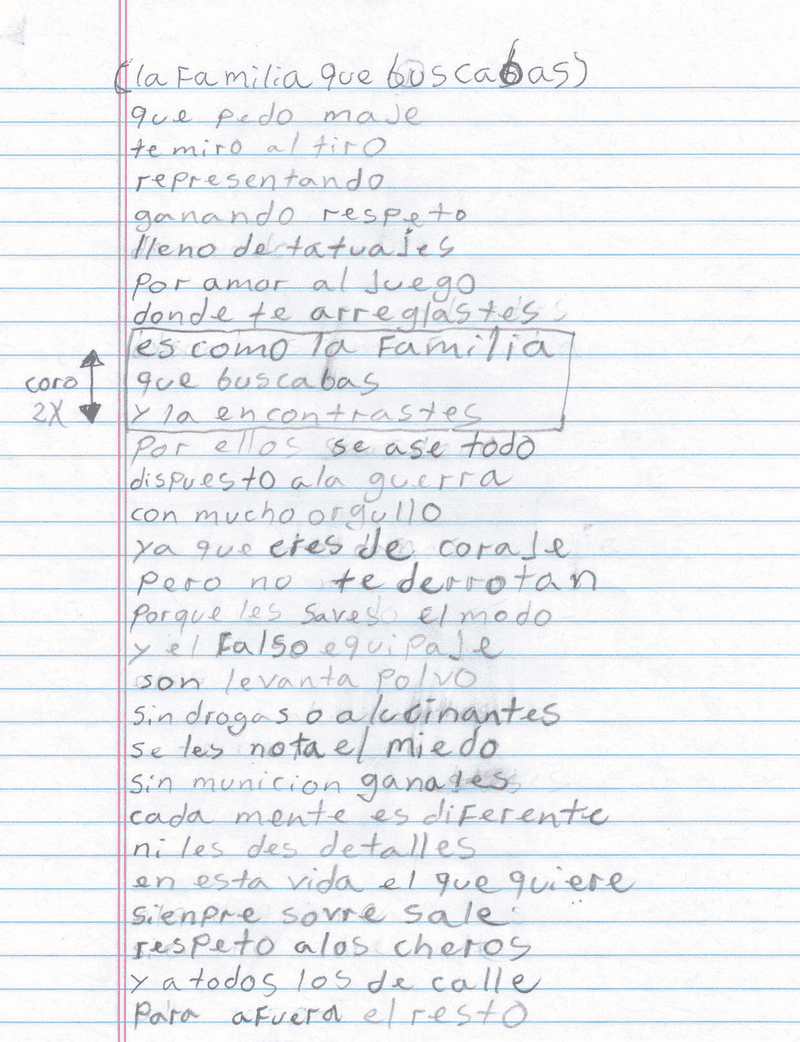 (la Familia que buscabas)
que pedo maje
te miro al tiro
representando
ganando respeto
lleno de tatuajes
por amor al juego
donde te arreglastes
es como la Familia
que buscabas
coro
2X
y la encontrastes
por ellos se ase todo
dispuesto ala guerra
con mucho orgullo
ya que eres de coraje
pero no te derrotan
porque les saves el modo
y el Falso equipaje
son levanta polvo
sin drogas o alucinantes
se les nota el miedo
sin municion ganales
cada mente es diFerente
ni les des detalles
en esta vida el que quiere
sienpre sovre sale
respeto alos cheros
y a todos los de calle
para aFuera el resto